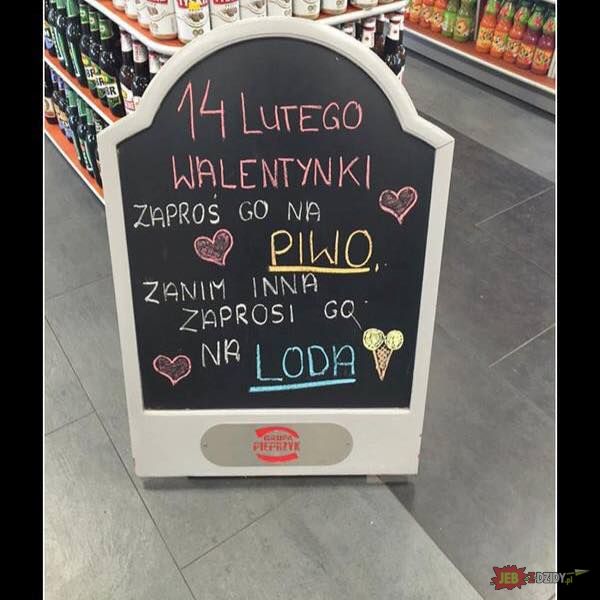 14 LUTEGO
WALENTYNKI
ZAPROŚ GO NA
PIWO,
ZANIM INNA
ZAPROSI GO
NA LODA
GRUPA
PIEPRZYK
JEBZDZIDY.pl